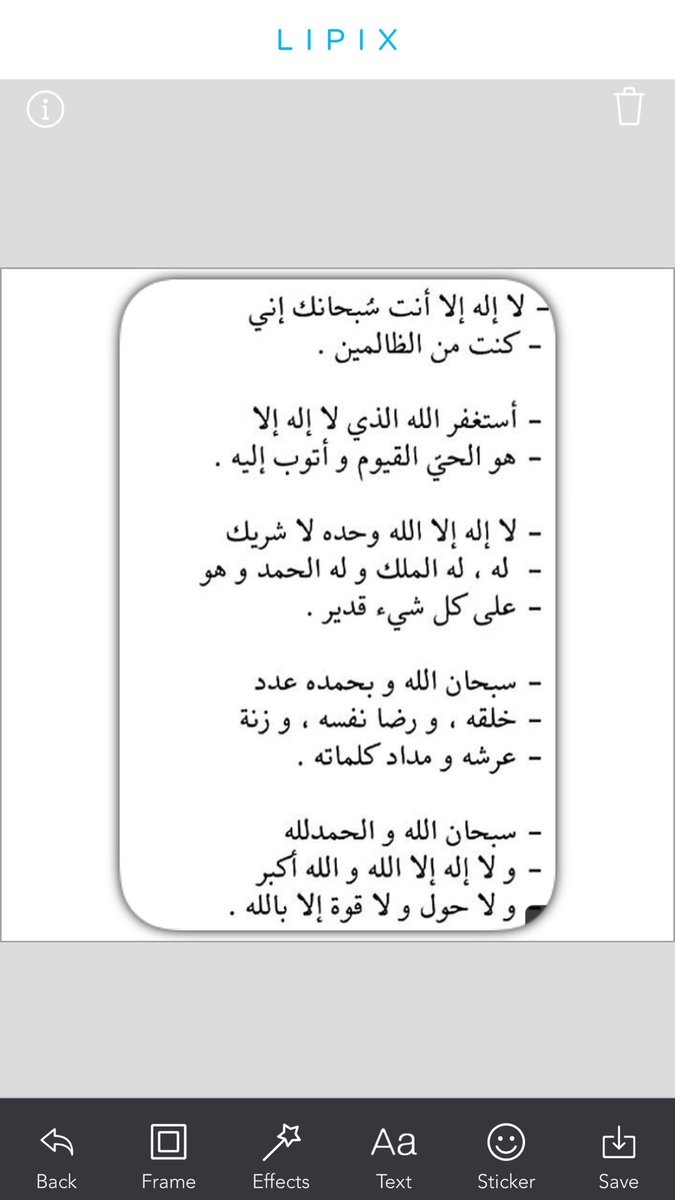 LIPIX
– لا إله إلا أنت سُبحانك إني
– كنت من الظالمين .
– أستغفر الله الذي لا إله إلا
– هو الحيّ القيوم و أتوب إليه .
– لا إله إلا الله وحده لا شريك
– له ، له الملك و له الحمد و هو
– على كل شيء قدير .
– سبحان الله و بحمده عدد
– خلقه ، و رضا نفسه ، و زنة
– عرشه و مداد كلماته .
– سبحان الله و الحمدلله
– و لا إله إلا الله و الله أكبر
– و لا حول و لا قوة إلا بالله .
Back Frame Effects Aa Text Sticker Save